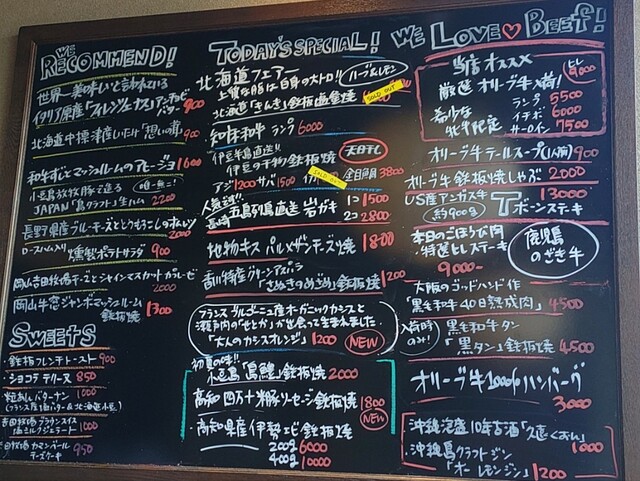 WE RECOMMEND!
世界一美味しいと言われている
イタリア原産「フィレンツェナス」アンチョビバター 900
北海道中標津産しいたけ「想いの茸」 900
和牛すじとマッシュルームのアヒージョ 1600
小豆島放牧豚で造る
JAPAN「島クラフト」生ハム 2200
長野県産ブルーチーズととうもろこしの
900
ロースハム入り 燻製ポテトサラダ 900
岡山吉田牧場チーズとシャインマスカット
2000
岡山牛窓ジャンボマッシュルーム
鉄板焼 1300
SWEETS
・鉄板フレンチトースト 900
・ショコラテリーヌ 850
・粒あんバターナン 1000
(フランス産
北海道小豆)
吉田牧場
塩ミルクジェラート 1000
吉田牧場カマンベール
チーズケーキ 950
TODAY'S SPECIAL!
北海道フェアー
上質な脂は白身の大トロ!!
ハーブ&レモン
北海道「きんき」鉄板道産焼
SOLD OUT
知多和牛 ランプ 6000
伊豆半島直送!!
伊豆の干物鉄板焼
天日干し
アジ 1200 サバ 1500
SOLD OUT
金目鯛 3800
人気爆発!!
長崎 五島列島直送 岩ガキ
1コ 1500
2コ 2800
地物キス パルメザンチーズ焼 1800
香川特産グリーンアスパラ
「さぬきのめざめ」鉄板焼 1200
フランスブルゴーニュ産オーガニックカシスと
瀬戸内の「せとか」が出会って生まれました。
「大人のカシスオレンジ」 1200
NEW
初夏の味!!
小豆島「島鱧」鉄板焼 2000
高知 四万十豚ソーセージ鉄板焼 1800
NEW
・高知県産伊勢エビ鉄板焼
200g 6000
400g 10000
WE LOVE♡BEEF!
当店オススメ
厳選オリーブ牛入荷!!
希少な
牝牛限定
ヒレ 9000
ランプ 5500
イチボ 6000
サーロイン 7500
オリーブ牛テールスープ(1人前) 900
オリーブ牛鉄板焼しゃぶ 2000
US産アンガス牛 13000
約900g
Tボーンステーキ
本日のごほうび肉
・特選ヒレステーキ
9000~
鹿児島
のざき牛
大阪のゴッドハンド作
「黒毛和牛40日熟成肉」 4500
入荷時のみ!
黒毛和牛タン
「黒タン」鉄板焼 4,500
オリーブ牛100%ハンバーグ
3000
沖縄泡盛10年古酒「
」 1000
・沖縄島クラフトジン
「オー レモンジン」 1200